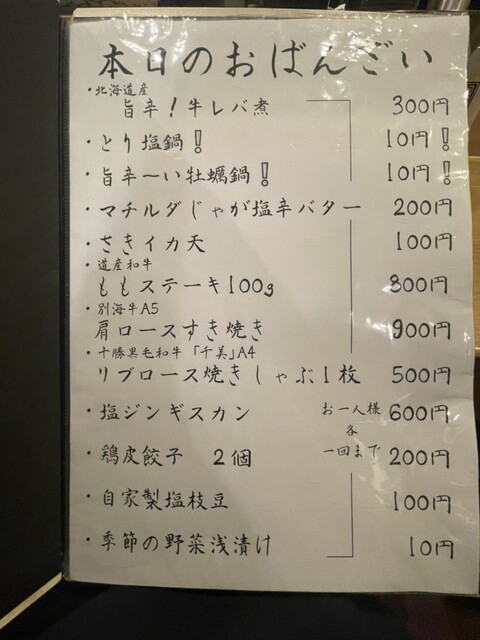 本日のおばんざい
・北海道産
旨辛!牛レバ煮 300円
・とり塩鍋! 10円!
・旨辛〜い牡蠣鍋! 10円!
・マチルダじゃが塩辛バター 200円
・さきイカ天 100円
・道産和牛
ももステーキ100g 800円
・別海牛A5
肩ロースすき焼き 900円
・十勝黒毛和牛「千美」A4
リブロース焼きしゃぶ1枚 500円
・塩ジンギスカン 600円
・鶏皮餃子 2個 200円
・自家製塩枝豆 100円
・季節の野菜浅漬け 10円
お一人様
各
一回まで